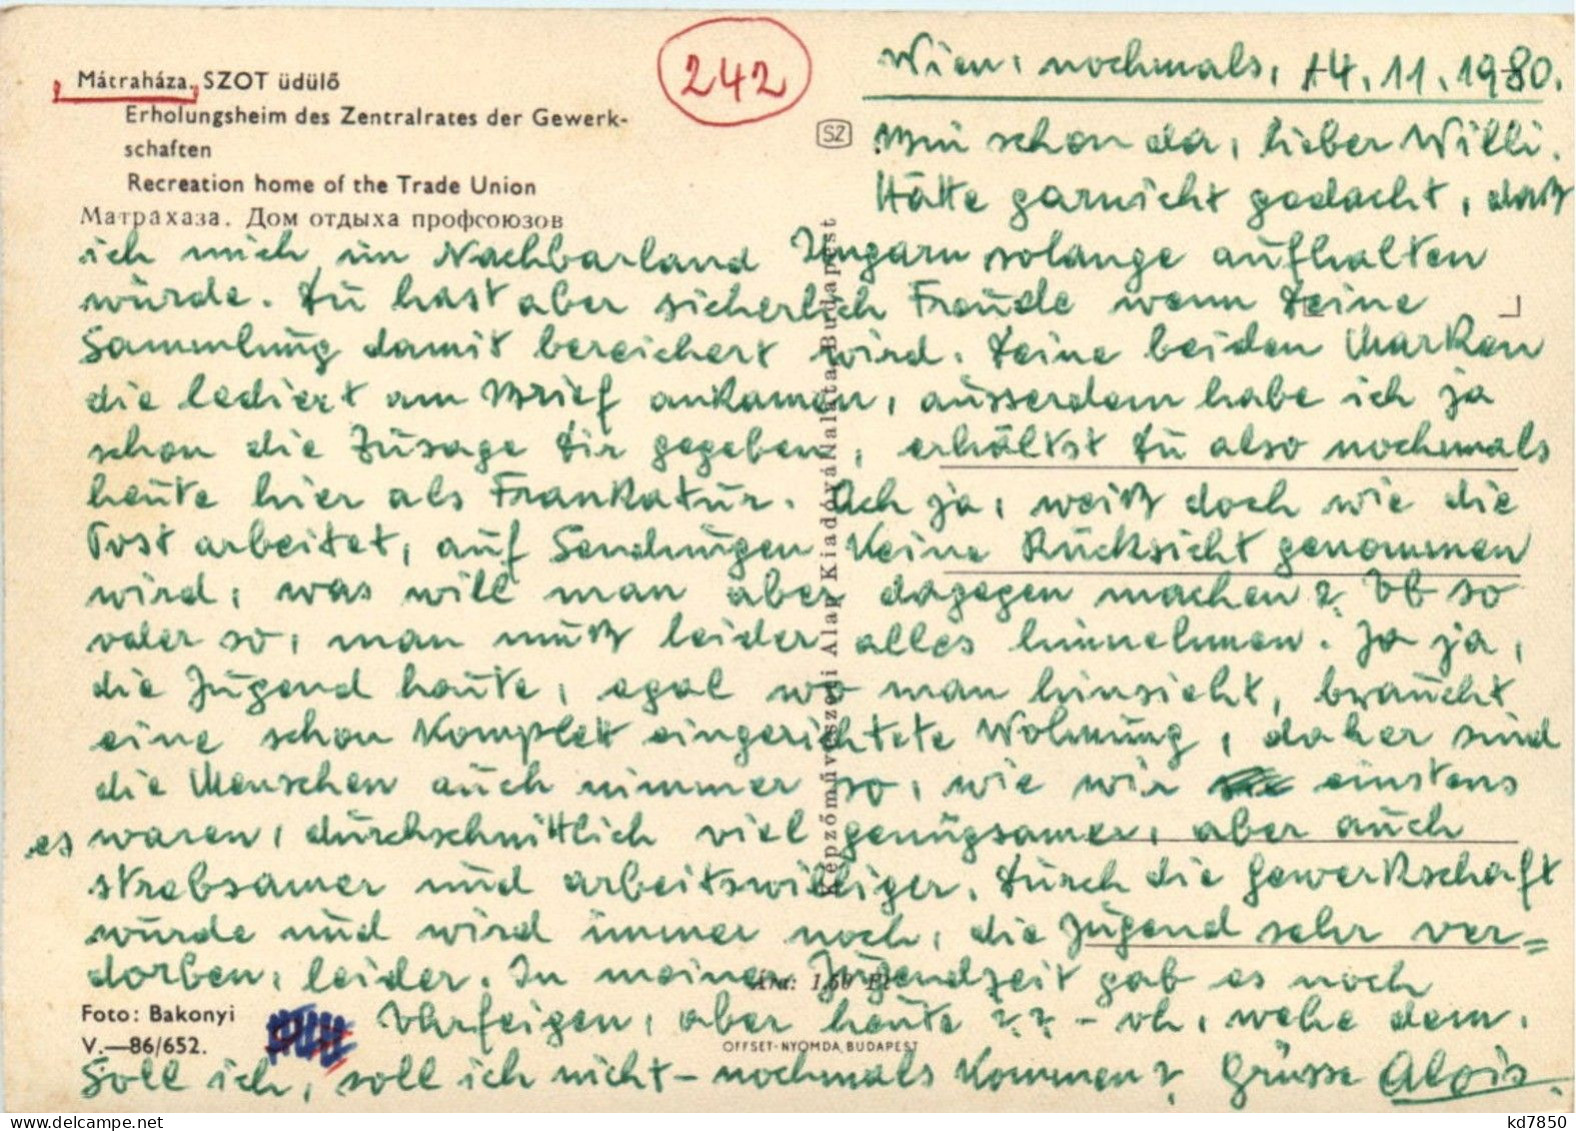 Mátraháza. SZOT üdülő
Erholungsheim des Zentralrates der Gewerk-
schaften
Recreation home of the Trade Union
Матрахаза. Дом отдыха профсоюзов
242
SZ
Wien, nochmals, 14.11.1980.
Bin schon da, lieber Willi.
Hätte garnicht gedacht, daß
ich mich im Nachbarland Ungarn solange aufhalten
würde. Du hast aber sicherlich Freude wenn Deine
Sammlung damit bereichert wird. Deine beiden Marken
die lediert am Brief ankamen, ausserdem habe ich ja
schon die Zusage Dir gegeben, erhältst Du also nochmals
heute hier als Frankatur. Ach ja, weiß doch wie die
Post arbeitet, auf Sendungen keine Rücksicht genommen
wird, was will man aber dagegen machen? Ob so
oder so, man muß leider alles hinnehmen. Ja ja,
die Jugend heute, egal wo man hinsieht, braucht
eine schon komplett eingerichtete Wohnung, daher sind
die Menschen auch nimmer so, wie wir einstens
es waren, durchschnittlich viel genügsamer, aber auch
strebsamer und arbeitswilliger. Durch die Gewerkschaft
wurde und wird immer noch, die Jugend sehr ver=
dorben, leider. In meiner Jugendzeit gab es noch
Ohrfeigen, aber heute ?? - oh, wehe dem.
Soll ich, soll ich nicht - nochmals kommen? Grüsse Alois.
Képzőművészeti Alap Kiadóvállalata, Budapest
Ára: 1,50 Ft
Foto: Bakonyi
V.—86/652.
OFFSET-NYOMDA, BUDAPEST
www.delcampe.net
kd7850